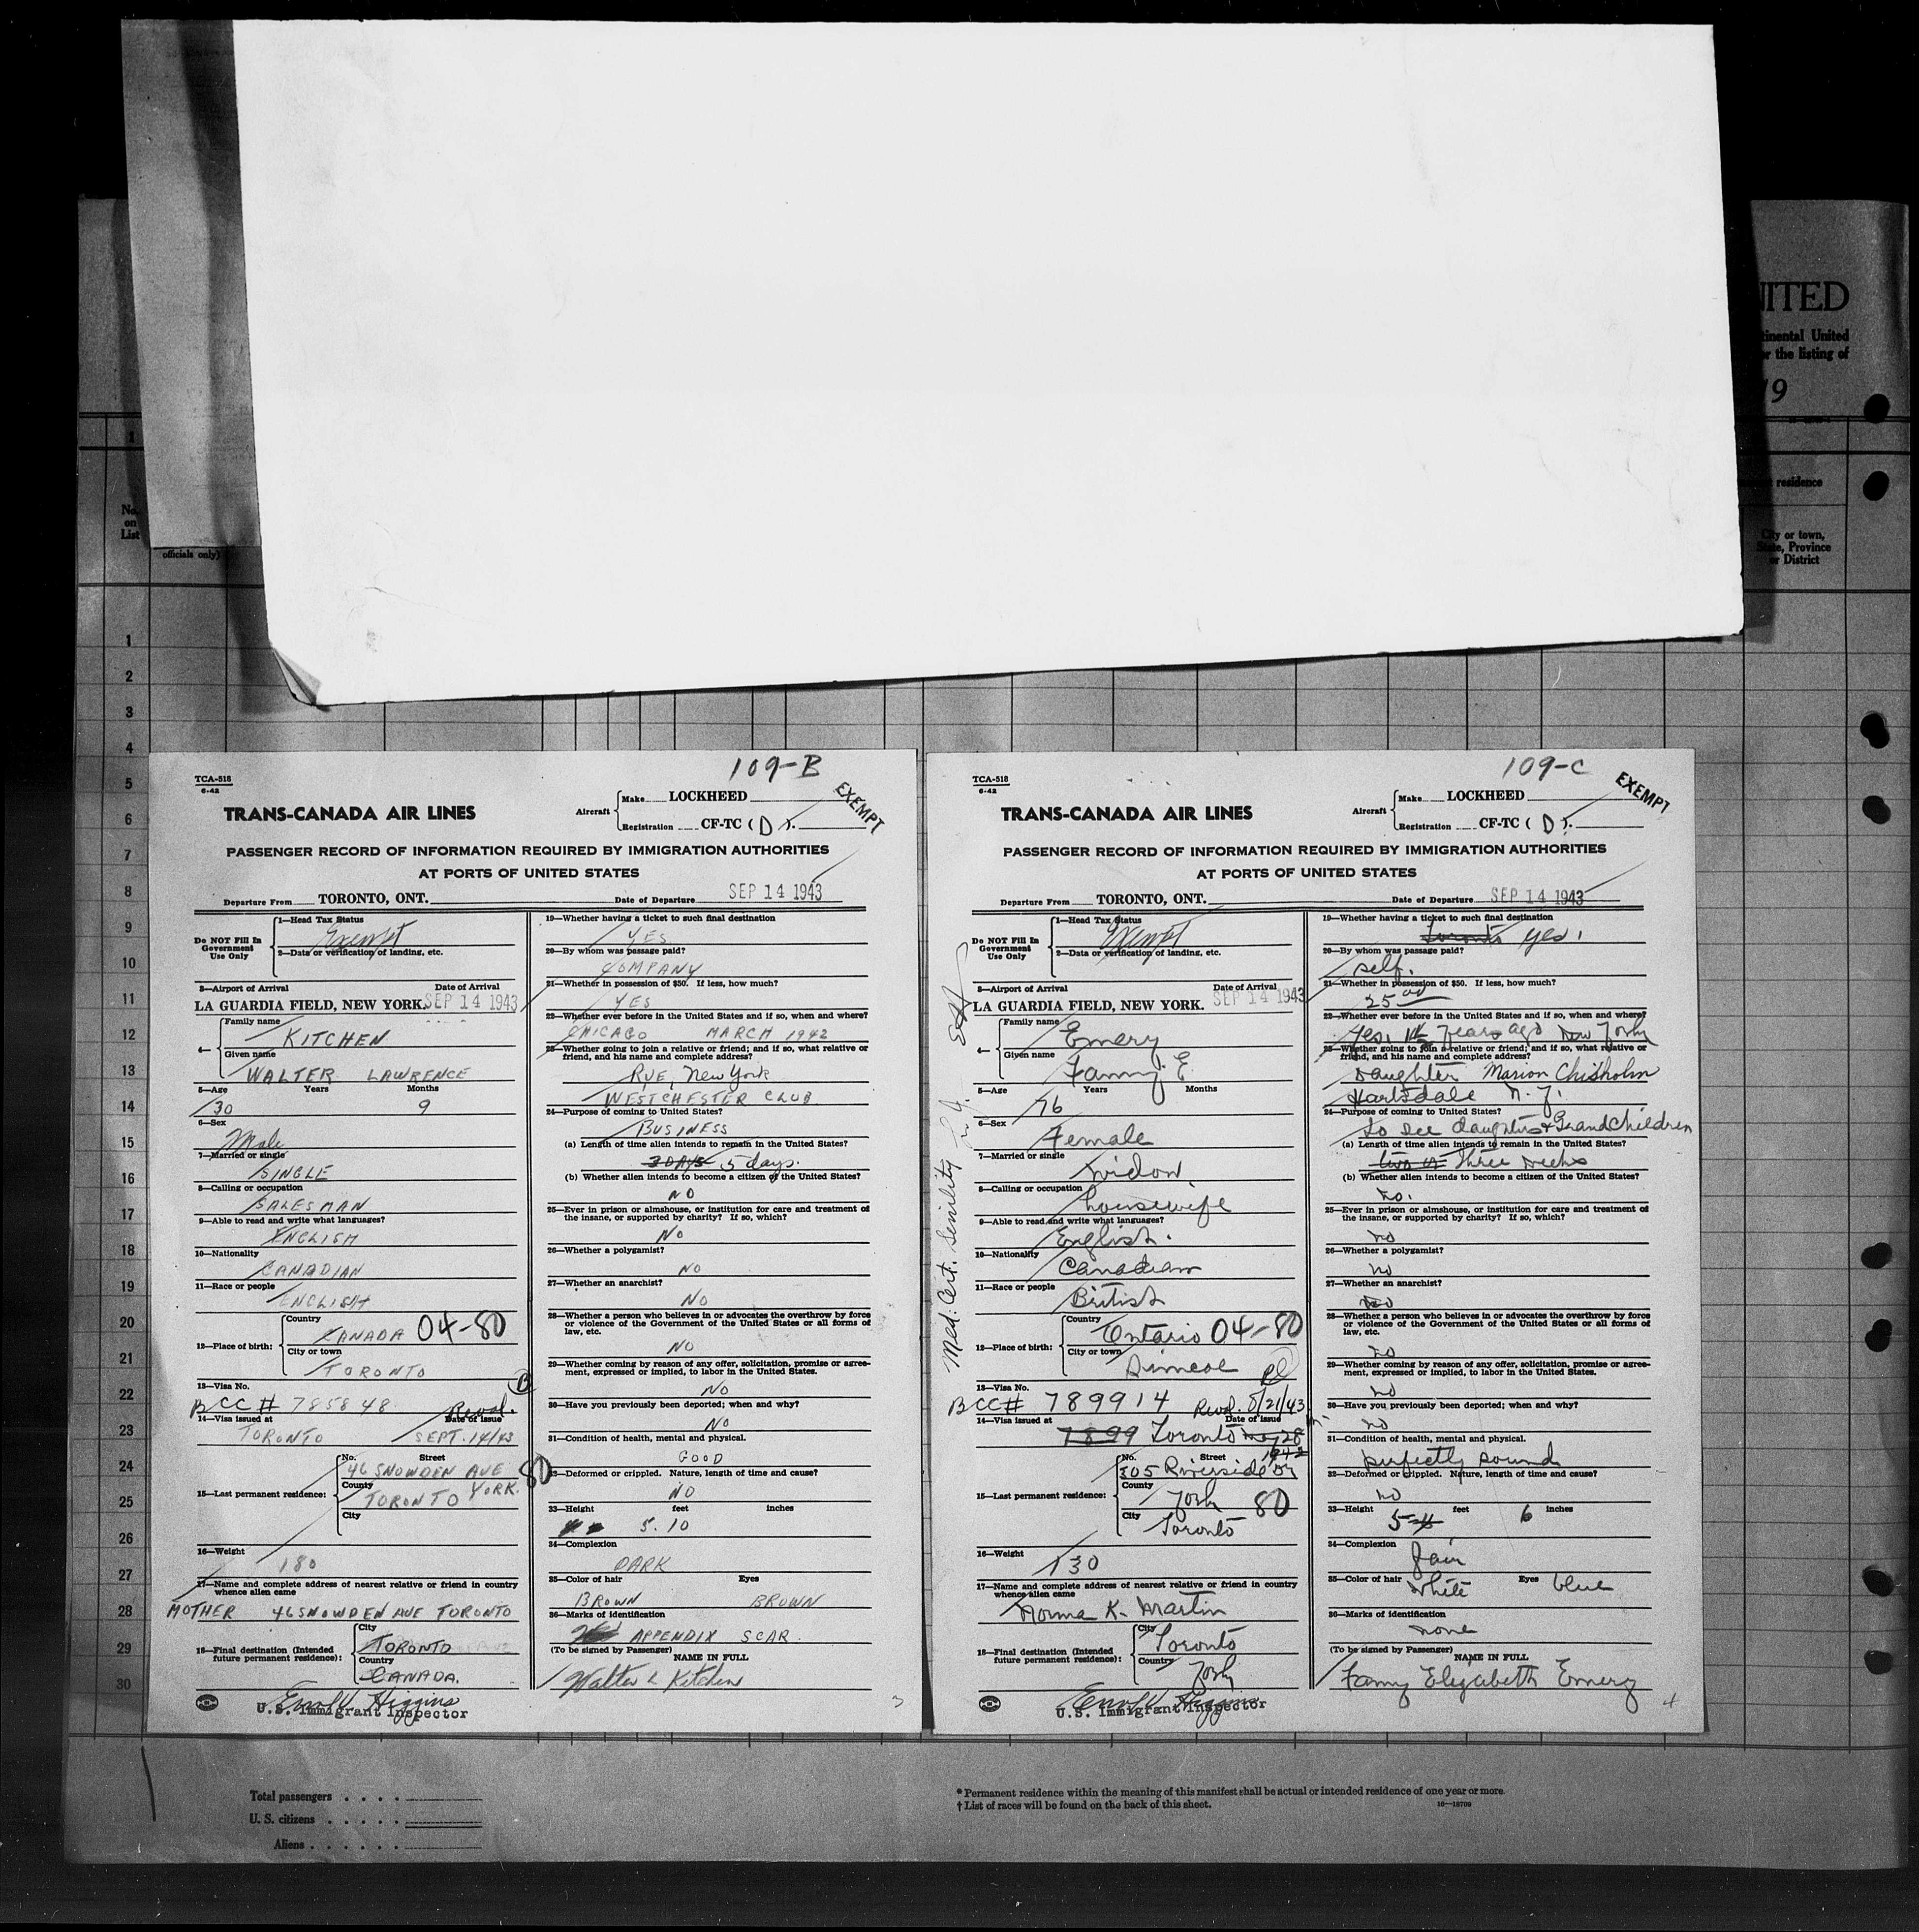 NITED
tinental United
or the listing of
19
residence
City or town,
State, Province
or District
No.
on
List
officials only)
1
1
2
3
4
5
6
7
8
9
10
11
12
13
14
15
16
17
18
19
20
21
22
23
24
25
26
27
28
29
30
109-B
TCA-518
6-42
TRANS-CANADA AIR LINES
Aircraft
Make LOCKHEED
Registration CF-TC (D).
EXEMPT
PASSENGER RECORD OF INFORMATION REQUIRED BY IMMIGRATION AUTHORITIES
AT PORTS OF UNITED STATES
Departure From TORONTO, ONT. Date of Departure SEP 14 1943
Do NOT Fill In
Government
Use Only
1—Head Tax Status
Exempt
2—Date or verification of landing, etc.
3—Airport of Arrival Date of Arrival
LA GUARDIA FIELD, NEW YORK. SEP 14 1943
4—
Family name
KITCHEN
Given name
WALTER LAWRENCE
5—Age Years Months
30 9
6—Sex
Male
7—Married or single
SINGLE
8—Calling or occupation
SALESMAN
9—Able to read and write what languages?
ENGLISH
10—Nationality
CANADIAN
11—Race or people
ENGLISH
12—Place of birth:
Country
CANADA 04-80
City or town
TORONTO
13—Visa No.
BCC # 785848 Revd.
14—Visa issued at Date of issue
TORONTO SEPT. 14/43
15—Last permanent residence:
No. Street
46 SNOWDEN AVE 80
County
TORONTO YORK.
City
16—Weight
180
17—Name and complete address of nearest relative or friend in country
whence alien came
MOTHER 46 SNOWDEN AVE TORONTO
18—Final destination (Intended
future permanent residence):
City
TORONTO
Country
CANADA.
U.S. Immigrant Inspector
19—Whether having a ticket to such final destination
YES
20—By whom was passage paid?
COMPANY
21—Whether in possession of $50. If less, how much?
YES
22—Whether ever before in the United States and if so, when and where?
CHICAGO MARCH 1942
23—Whether going to join a relative or friend; and if so, what relative or
friend, and his name and complete address?
RYE, New York
WESTCHESTER CLUB
24—Purpose of coming to United States?
BUSINESS
(a) Length of time alien intends to remain in the United States?
3 DAYS 5 days.
(b) Whether alien intends to become a citizen of the United States?
NO
25—Ever in prison or almshouse, or institution for care and treatment of
the insane, or supported by charity? If so, which?
NO
26—Whether a polygamist?
NO
27—Whether an anarchist?
NO
28—Whether a person who believes in or advocates the overthrow by force
or violence of the Government of the United States or all forms of
law, etc.
NO
29—Whether coming by reason of any offer, solicitation, promise or agree-
ment, expressed or implied, to labor in the United States.
NO
30—Have you previously been deported; when and why?
NO
31—Condition of health, mental and physical.
GOOD
32—Deformed or crippled. Nature, length of time and cause?
NO
33—Height feet inches
5. 10
34—Complexion
DARK
35—Color of hair Eyes
BROWN BROWN
36—Marks of identification
APPENDIX SCAR.
(To be signed by Passenger)
NAME IN FULL
Walter L Kitchen
3
109-C
TCA-518
6-42
TRANS-CANADA AIR LINES
Aircraft
Make LOCKHEED
Registration CF-TC (D).
EXEMPT
PASSENGER RECORD OF INFORMATION REQUIRED BY IMMIGRATION AUTHORITIES
AT PORTS OF UNITED STATES
Departure From TORONTO, ONT. Date of Departure SEP 14 1943
Med. Cert. Senility
Do NOT Fill In
Government
Use Only
1—Head Tax Status
Exempt
2—Date or verification of landing, etc.
3—Airport of Arrival Date of Arrival
LA GUARDIA FIELD, NEW YORK. SEP 14 1943
4—
Family name
Emery
Given name
Fanny. E
5—Age Years Months
76
6—Sex
Female
7—Married or single
widow.
8—Calling or occupation
housewife
9—Able to read and write what languages?
English.
10—Nationality
Canadian
11—Race or people
British
12—Place of birth:
Country
Ontario 04-80
City or town
Simcoe
13—Visa No.
BCC# 789914 Revd. 5/21/43
14—Visa issued at Date of issue
1899 Toronto May 28
1942
15—Last permanent residence:
No. Street
305 Riverside Dr
County
York 80
City
Toronto
16—Weight
130
17—Name and complete address of nearest relative or friend in country
whence alien came
Norma K. Martin
18—Final destination (Intended
future permanent residence):
City
Toronto
Country
York
U.S. Immigrant Inspector
19—Whether having a ticket to such final destination
Toronto yes.
20—By whom was passage paid?
self.
21—Whether in possession of $50. If less, how much?
25 00
22—Whether ever before in the United States and if so, when and where?
Yes. 1½ years ago New York
23—Whether going to join a relative or friend; and if so, what relative or
friend, and his name and complete address?
Daughter Marion Chisholm
Hartsdale N.Y.
24—Purpose of coming to United States?
to see daughter & Grandchildren
(a) Length of time alien intends to remain in the United States?
two or three weeks
(b) Whether alien intends to become a citizen of the United States?
no.
25—Ever in prison or almshouse, or institution for care and treatment of
the insane, or supported by charity? If so, which?
no
26—Whether a polygamist?
no
27—Whether an anarchist?
no
28—Whether a person who believes in or advocates the overthrow by force
or violence of the Government of the United States or all forms of
law, etc.
no
29—Whether coming by reason of any offer, solicitation, promise or agree-
ment, expressed or implied, to labor in the United States.
no
30—Have you previously been deported; when and why?
no
31—Condition of health, mental and physical.
perfectly sound
32—Deformed or crippled. Nature, length of time and cause?
no
33—Height feet inches
5 6
34—Complexion
fair
35—Color of hair Eyes
white blue
36—Marks of identification
none
(To be signed by Passenger)
NAME IN FULL
Fanny Elizabeth Emery
4
Total passengers . . . .
U. S. citizens . . . . .
Aliens . . . . . .
* Permanent residence within the meaning of this manifest shall be actual or intended residence of one year or more.
† List of races will be found on the back of this sheet. 16—18709